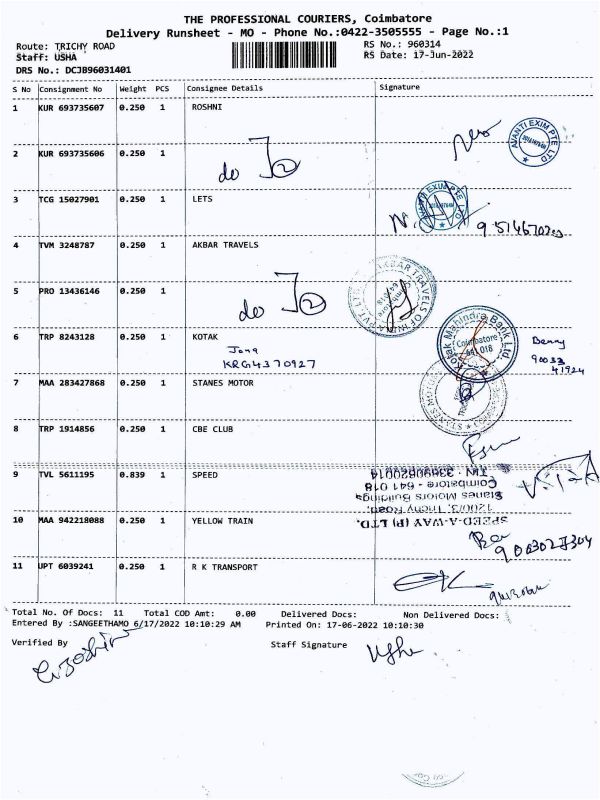 THE PROFESSIONAL COURIERS, Coimbatore
Delivery Runsheet - MO - Phone No.:0422-3505555 - Page No.:1
Route: TRICHY ROAD RS No.: 960314
Staff: USHA RS Date: 17-Jun-2022
DRS No.: DCJB96031401
S No Consignment No Weight PCS Consignee Details Signature
1 KUR 693735607 0.250 1 ROSHNI
AVANTI EXIM PTE LTD
2 KUR 693735606 0.250 1
do
3 TCG 15027901 0.250 1 LETS
AVANTI EXIM PTE LTD
4 TVM 3248787 0.250 1 AKBAR TRAVELS
AKBAR TRAVELS OF INDIA PVT LTD
5 PRO 13436146 0.250 1
do
6 TRP 8243128 0.250 1 KOTAK
KRG4370927
Kotak Mahindra Bank Ltd.
Coimbatore
641 018
90033
41924
7 MAA 283427868 0.250 1 STANES MOTOR
STANES MOTORS
8 TRP 1914856 0.250 1 CBE CLUB
9 TVL 5611195 0.839 1 SPEED
SPEED-A-WAY (P) LTD.
1200/3, Trichy Road,
Stanes Motors Buildings
Coimbatore - 641 018
10 MAA 942218088 0.250 1 YELLOW TRAIN
11 UPT 6039241 0.250 1 R K TRANSPORT
Total No. Of Docs: 11 Total COD Amt: 0.00 Delivered Docs: Non Delivered Docs:
Entered By :SANGEETHAMO 6/17/2022 10:10:29 AM Printed On: 17-06-2022 10:10:30
Verified By Staff Signature
Usha